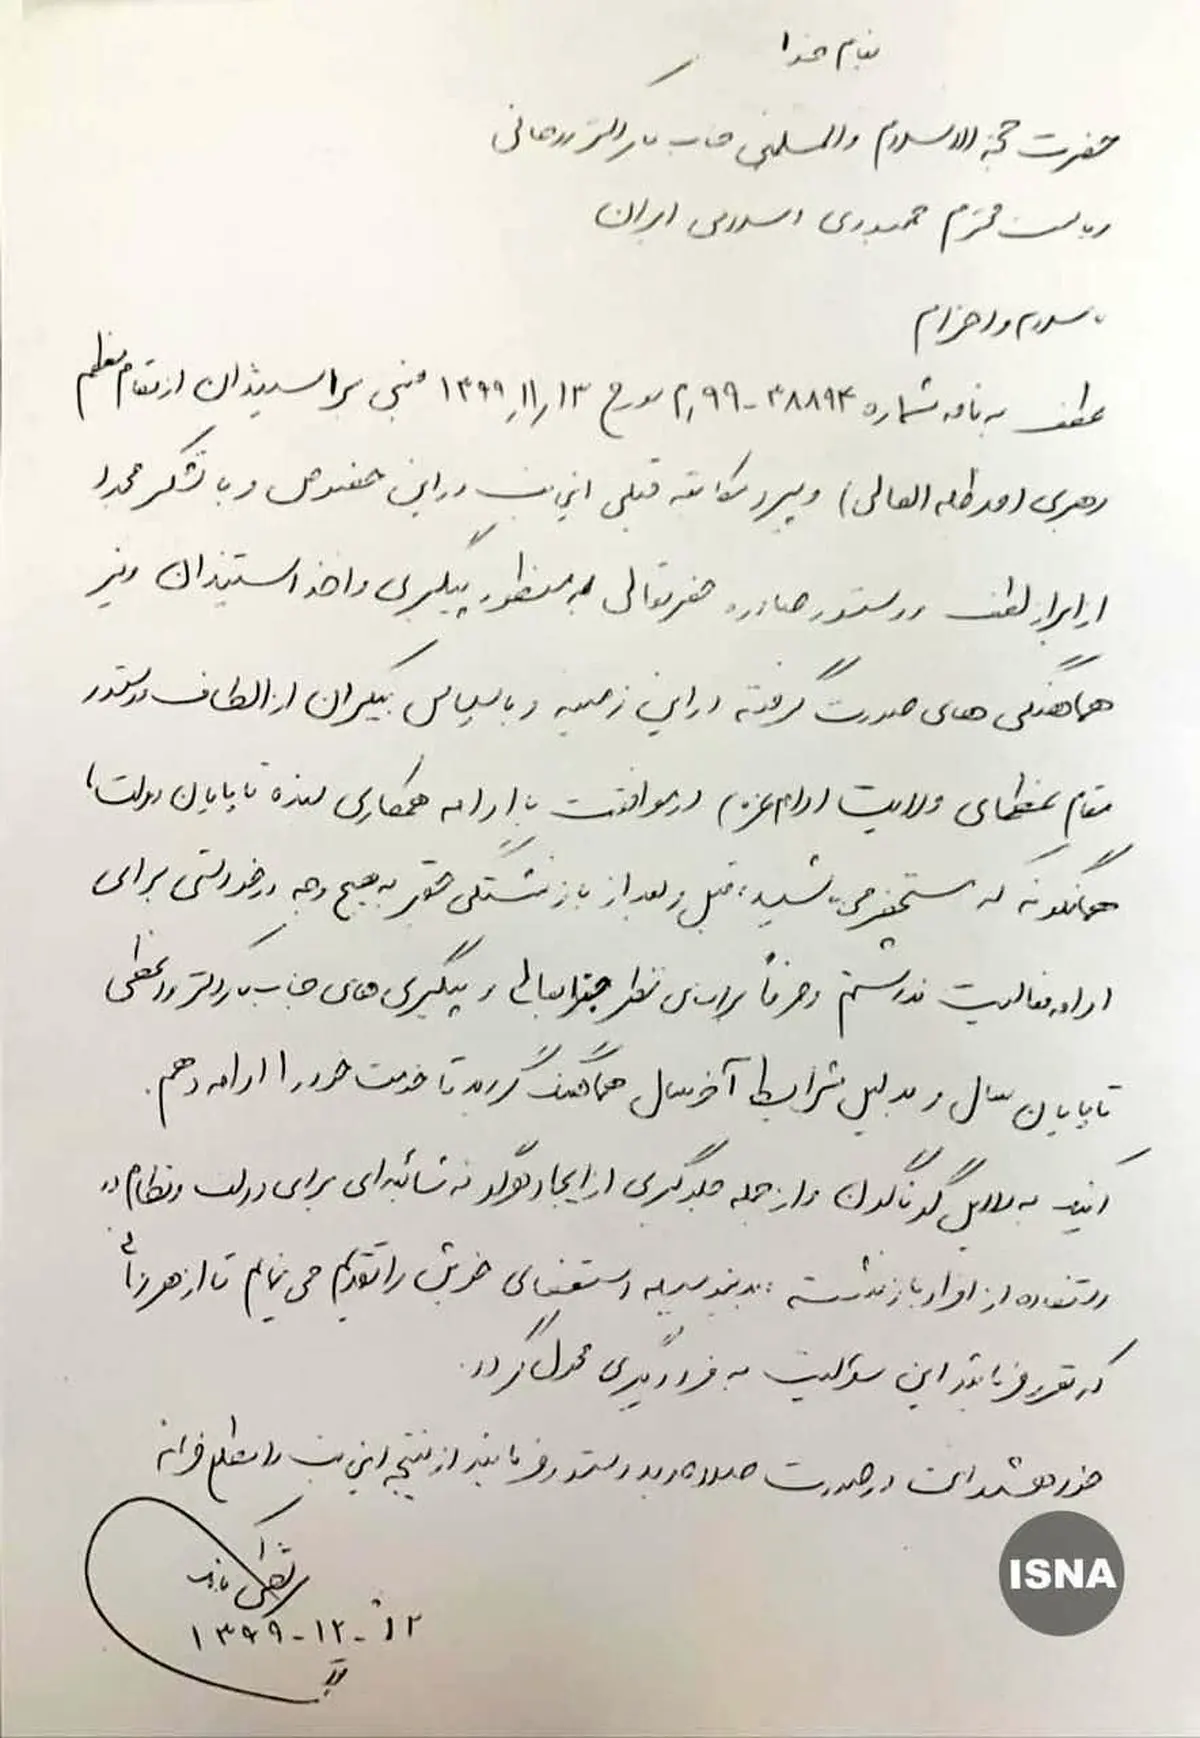 بنام خدا
حضرت حجة الاسلام والمسلمین جناب آقای دکتر روحانی
ریاست محترم جمهوری اسلامی ایران
با سلام و احترام
عطف به نامه شماره ۳۸۸۹۴-م۹۹ مورخ ۱۳؍۱۱؍۱۳۹۹ مبنی بر استیذان از مقام معظم
رهبری (مد ظله العالی) و پیرو مکاتبه قبلی اینجانب در این خصوص و با تشکر مجدد
از ابراز لطف و دستور صادره حضرتعالی به منظور پیگیری و اخذ استیذان و نیز
هماهنگی های صورت گرفته در این زمینه و با سپاس بیکران از الطاف و دستور
مقام عظمای ولایت (دام عزه) در موافقت با ادامه همکاری بنده تا پایان دولت،
همانگونه که مستحضر می باشید؛ قبل و بعد از بازنشستگی حقیر به هیچ وجه درخواستی برای
ادامه فعالیت نداشتم و صرفاً بر اساس نظر جنابعالی و پیگیری های جناب آقای دکتر واعظی
تا پایان سال و بدلیل شرایط آخر سال هماهنگ گردید تا خدمت خود را ادامه دهم.
اینک به دلایل گوناگون و از جمله جلوگیری از ایجاد هرگونه شائبه ای برای دولت و نظام در
استفاده از افراد بازنشسته؛ بدینوسیله استعفای خویش را تقدیم می نمایم تا از هر زمانی
که مقرر فرمایید این مسئولیت به فرد دیگری محول گردد.
خواهشمند است در صورت صلاحدید دستور فرمایید از نتیجه اینجانب را مطلع فرمایند
۱۳۹۹-۱۲-۱۲
ISNA